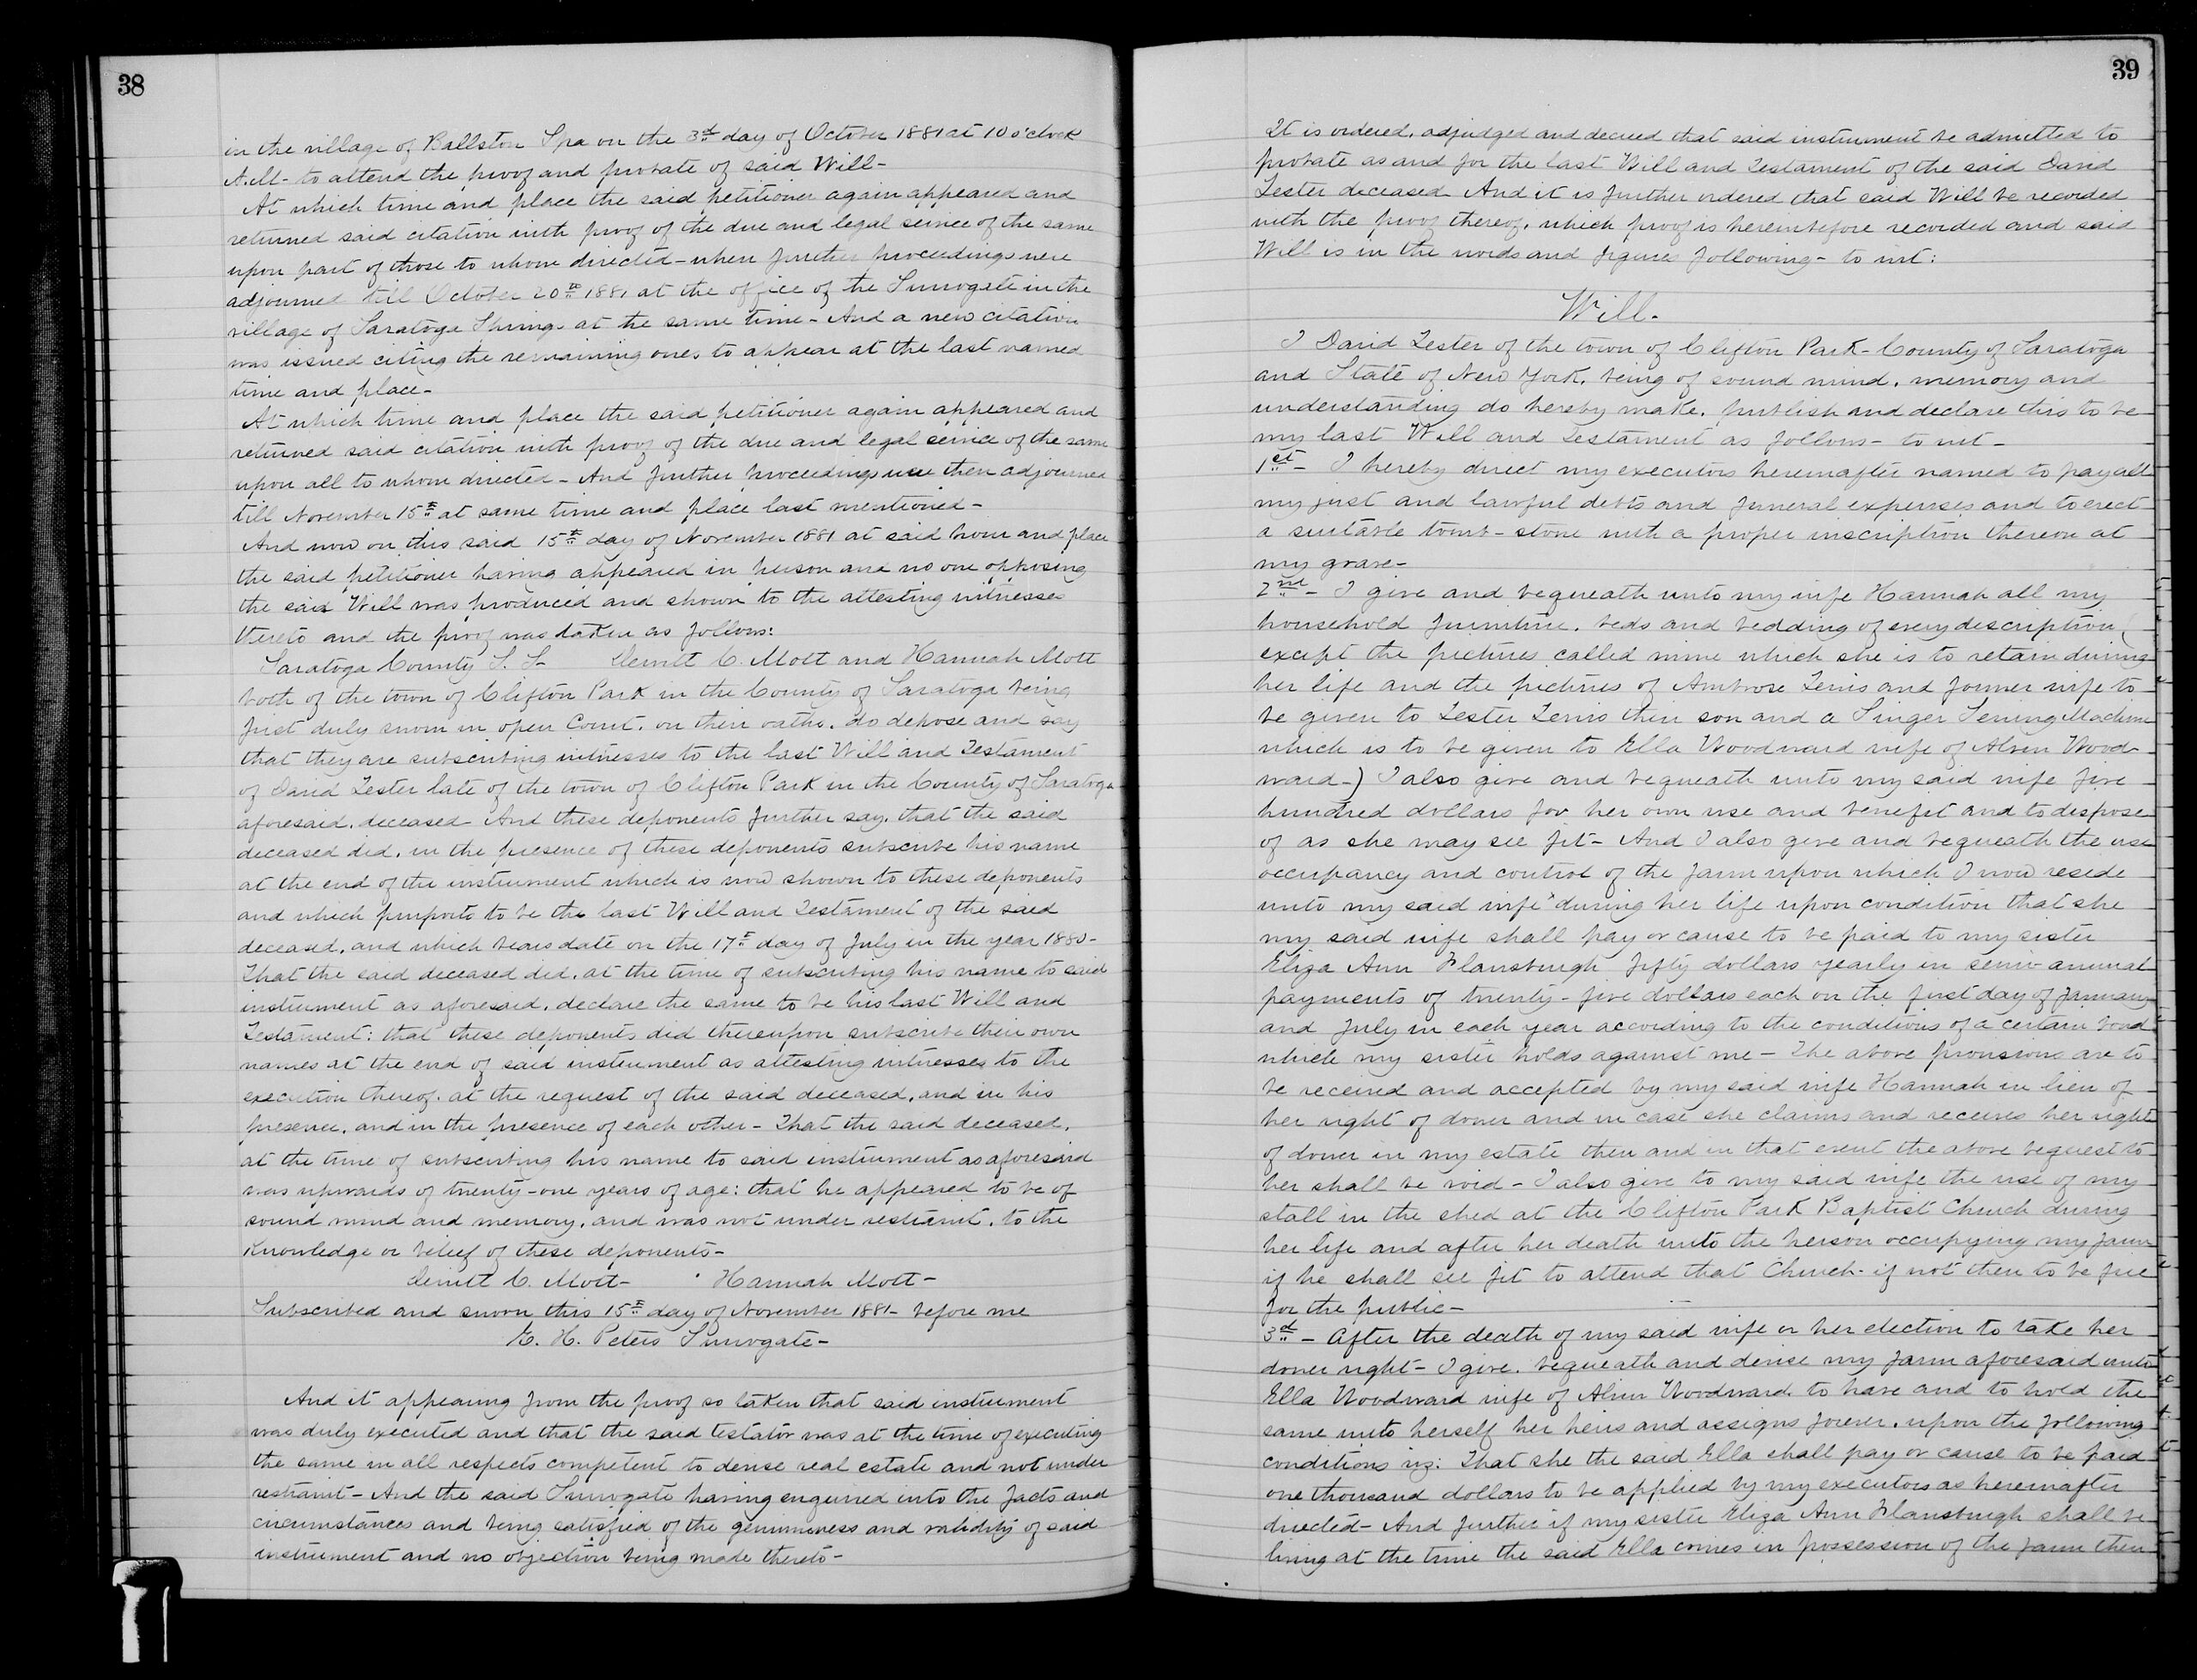 38
in the village of Ballston Spa on the 3d day of October 1881 at 10 o'clock
A.M- to attend the proof and probate of said Will-
At which time and place the said petitioner again appeared and
returned said citation with proof of the due and legal service of the same
upon part of those to whom directed - when further proceedings were
adjourned till October 20th 1881 at the office of the Surrogate in the
village of Saratoga Springs at the same time - And a new citation
was issued citing the remaining ones to appear at the last named
time and place-
At which time and place the said petitioner again appeared and
returned said citation with proof of the due and legal service of the same
upon all to whom directed - And further proceedings were then adjourned
till November 15th at same time and place last mentioned -
And now on this said 15th day of November 1881 at said hour and place
the said petitioner having appeared in person and no one opposing
the said Will was produced and shown to the attesting witnesses
thereto and the proof was taken as follows:
Saratoga County S. S- Dewitt C. Mott and Hannah Mott
both of the town of Clifton Park in the County of Saratoga being
first duly sworn in open Court, on their oaths, do depose and say
that they are subscribing witnesses to the last Will and Testament
of David Lester late of the town of Clifton Park in the County of Saratoga
aforesaid, deceased And these deponents further say, that the said
deceased did, in the presence of these deponents subscribe his name
at the end of the instrument which is now shown to these deponents
and which purports to be the last Will and Testament of the said
deceased, and which bears date on the 17th day of July in the year 1880-
That the said deceased did, at the time of subscribing his name to said
instrument as aforesaid, declare the same to be his last Will and
Testament: that these deponents did thereupon subscribe their own
names at the end of said instrument as attesting witnesses to the
execution thereof, at the request of the said deceased, and in his
presence, and in the presence of each other - That the said deceased,
at the time of subscribing his name to said instrument as aforesaid
was upwards of twenty-one years of age: that he appeared to be of
sound mind and memory, and was not under restraint, to the
Knowledge or belief of these deponents-
Dewitt C. Mott- Hannah Mott-
Subscribed and sworn this 15th day of November 1881- before me
E. H. Peters Surrogate-
And it appearing from the proof so taken that said instrument
was duly executed and that the said testator was at the time of executing
the same in all respects competent to devise real estate and not under
restraint - And the said Surrogate having enquired into the facts and
circumstances and being satisfied of the genuineness and validity of said
instrument and no objection being made thereto-
39
It is ordered, adjudged and decreed that said instrument be admitted to
probate as and for the last Will and Testament of the said David
Lester deceased And it is further ordered that said Will be recorded
with the proof thereof, which proof is hereinbefore recorded and said
Will is in the words and figures following - to wit:
Will.
I David Lester of the town of Clifton Park - County of Saratoga
and State of New York, being of sound mind, memory and
understanding do hereby make, publish and declare this to be
my last Will and Testament as follows - to wit -
1st - I hereby direct my executors hereinafter named to pay all
my just and lawful debts and funeral expenses and to erect
a suitable tomb-stone with a proper inscription thereon at
my grave-
2nd - I give and bequeath unto my wife Hannah all my
household furniture, beds and bedding of every description (
except the pictures called mine which she is to retain during
her life and the pictures of Ambrose Lewis and former wife to
be given to Lester Lewis their son and a Singer Sewing Machine
which is to be given to Ella Woodward wife of Alvin Wood-
ward-) I also give and bequeath unto my said wife five
hundred dollars for her own use and benefit and to dispose
of as she may see fit - And I also give and bequeath the use
occupancy and control of the farm upon which I now reside
unto my said wife during her life upon condition that she
my said wife shall pay or cause to be paid to my sister
Eliza Ann Flansburgh fifty dollars yearly in semi-annual
payments of twenty-five dollars each on the first day of January
and July in each year according to the conditions of a certain bond
which my sister holds against me - The above provisions are to
be received and accepted by my said wife Hannah in lieu of
her right of dower and in case she claims and receives her right
of dower in my estate then and in that event the above bequest to
her shall be void - I also give to my said wife the use of my
stall in the shed at the Clifton Park Baptist Church during
her life and after her death unto the person occupying my farm
if he shall see fit to attend that Church - if not then to be free
for the public-
3d - After the death of my said wife or her election to take her
dower right - I give, bequeath and devise my farm aforesaid unto
Ella Woodward wife of Alvin Woodward to have and to hold the
same unto herself her heirs and assigns forever, upon the following
conditions viz: That she the said Ella shall pay or cause to be paid
one thousand dollars to be applied by my executors as hereinafter
directed - And further if my sister Eliza Ann Flansburgh shall be
living at the time the said Ella comes in possession of the farm then